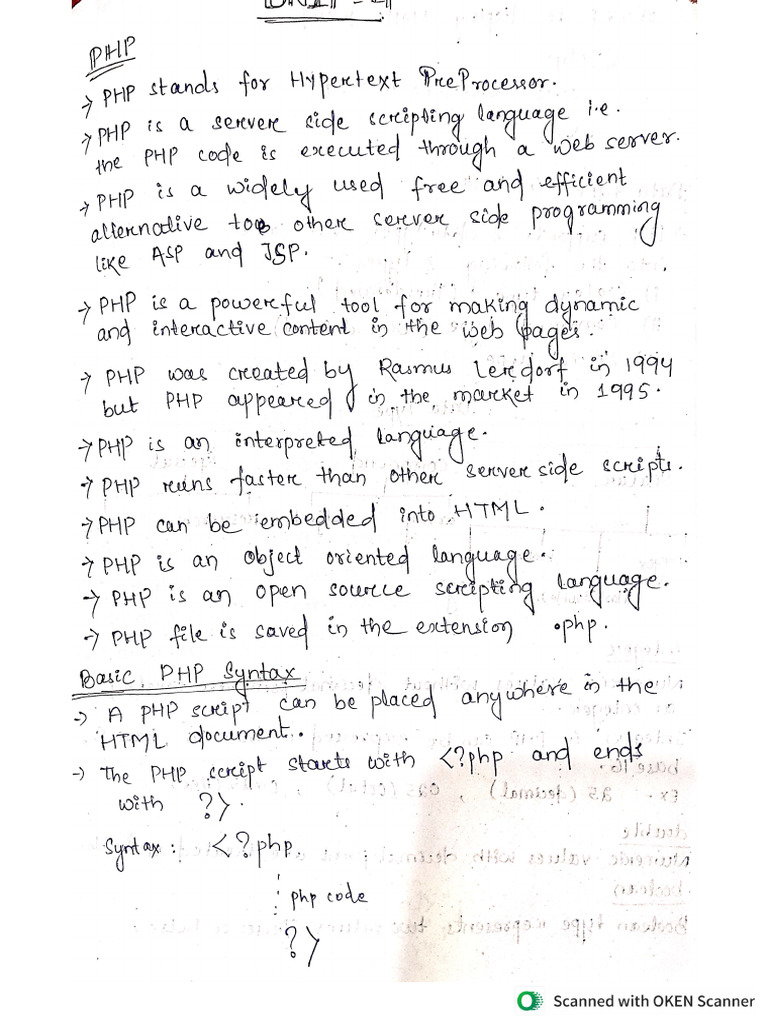 UNIT-4
PHP
→ PHP stands for Hypertext PreProcessor.
→ PHP is a server side scripting language i.e.
the PHP code is executed through a web server.
→ PHP is a widely used free and efficient
alternative to other server side programming
like ASP and JSP.
→ PHP is a powerful tool for making dynamic
and interactive content in the web pages.
→ PHP was created by Rasmus Lerdorf in 1994
but PHP appeared in the market in 1995.
→ PHP is an interpreted language.
→ PHP runs faster than other server side scripts.
→ PHP can be embedded into HTML.
→ PHP is an object oriented language.
→ PHP is an open source scripting language.
→ PHP file is saved in the extension .php.
Basic PHP Syntax
→ A PHP script can be placed anywhere in the
HTML document.
→ The PHP script starts with <?php and ends
with ?>.
Syntax: <?php
php code
?>
Scanned with OKEN Scanner